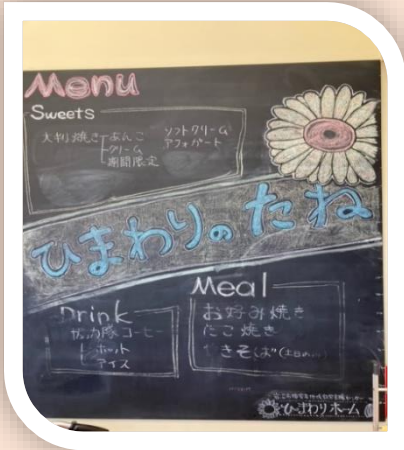 Menu
Sweets
大判焼き あんこ
クリーム
期間限定
ソフトクリーム
アフォガート
ひまわりのたね
Drink
協力隊コーヒー
ホット
アイス
Meal
お好み焼き
たこ焼き
やきそば(土日のみ)
ひまわりホーム